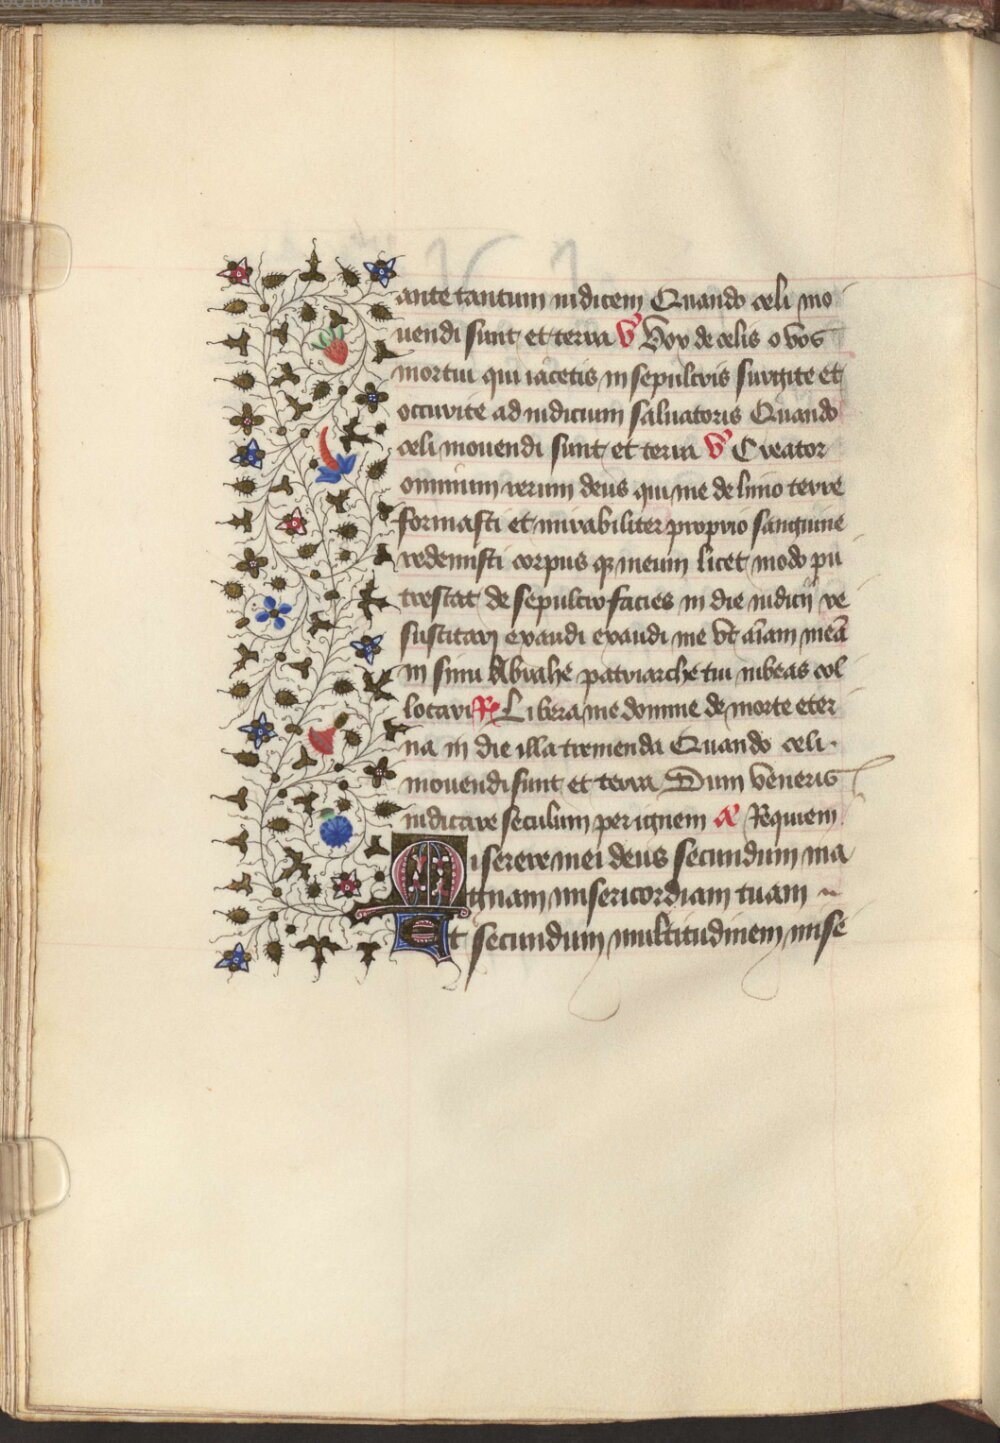 ante tantum iudicem Quando celi mo
uendi sunt et terra V̕ Vox de celis o vos
mortui qui iacetis in sepulcris surgite et
occurite ad iudicium saluatoris Quando
celi mouendi sunt et terra V̕ Creator
omnium rerum deus qui me de limo terre
formasti et mirabiliter proprio sanguine
redemisti corpus qꝫ meum licet modo pu
trescat de sepulcro facies in die iudicij re
suscitari exaudi exaudi me vt aīam meā
in sinu Abrahe patriarche tui iubeas col
locari ℞ Libera me domine de morte eter
na in die illa tremenda Quando celi
mouendi sunt et terra Dum veneris
iudicare seculum per ignem Requiem
Miserere mei deus secundum ma
gnam misericordiam tuam
Et secundum multitudinem mise